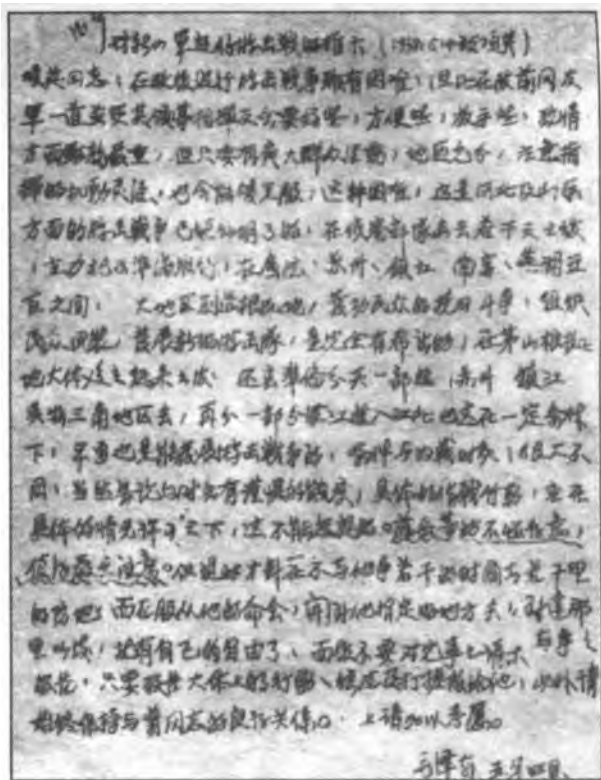 对新四军进行游击战的指示(1938.5.4 致项英)
项英同志:在敌后进行游击战争虽有困难,但比在敌前同友
军一道并受其领导指挥反会要好些,方便些,放手些,敌情
方面虽较严重,但只要有广大群众活动,地区充分,注意指
挥的机动灵活,也会能够克服这种困难,这是河北及山东
方面的游击战争已经证明了的,在侦察部队出去若干天之后
,主力就可准备跟行,在广德、苏州、镇江、南京、芜湖五
区之间 大地区创造根据地,发动民众的抗日斗争,组织
民众武装,发展新的游击队,是完全有希望的,在茅山根据
地大体建立起来之后 还应准备分兵一部进 苏州 镇江
吴淞三角地区去,再分一部分渡江进入江北地区在一定条件
下,平原也是能发展游击战争的,条件与内战时候,很大不
同,当然无论何时应有谨慎的态度,具体的作战行动,应在
具体的情况许可之下,
但 在于与他争若干的时间与若干里
的防地,而在服从他的命令,开到他指定的地方去,到达那
里以后,就有自己的自由了,而后不要对 事事请示与事事
报告,只要报告大体上的行动 此外请
始终保持与 同志的良好关系。 上请加以考虑。
毛泽东 五月四日